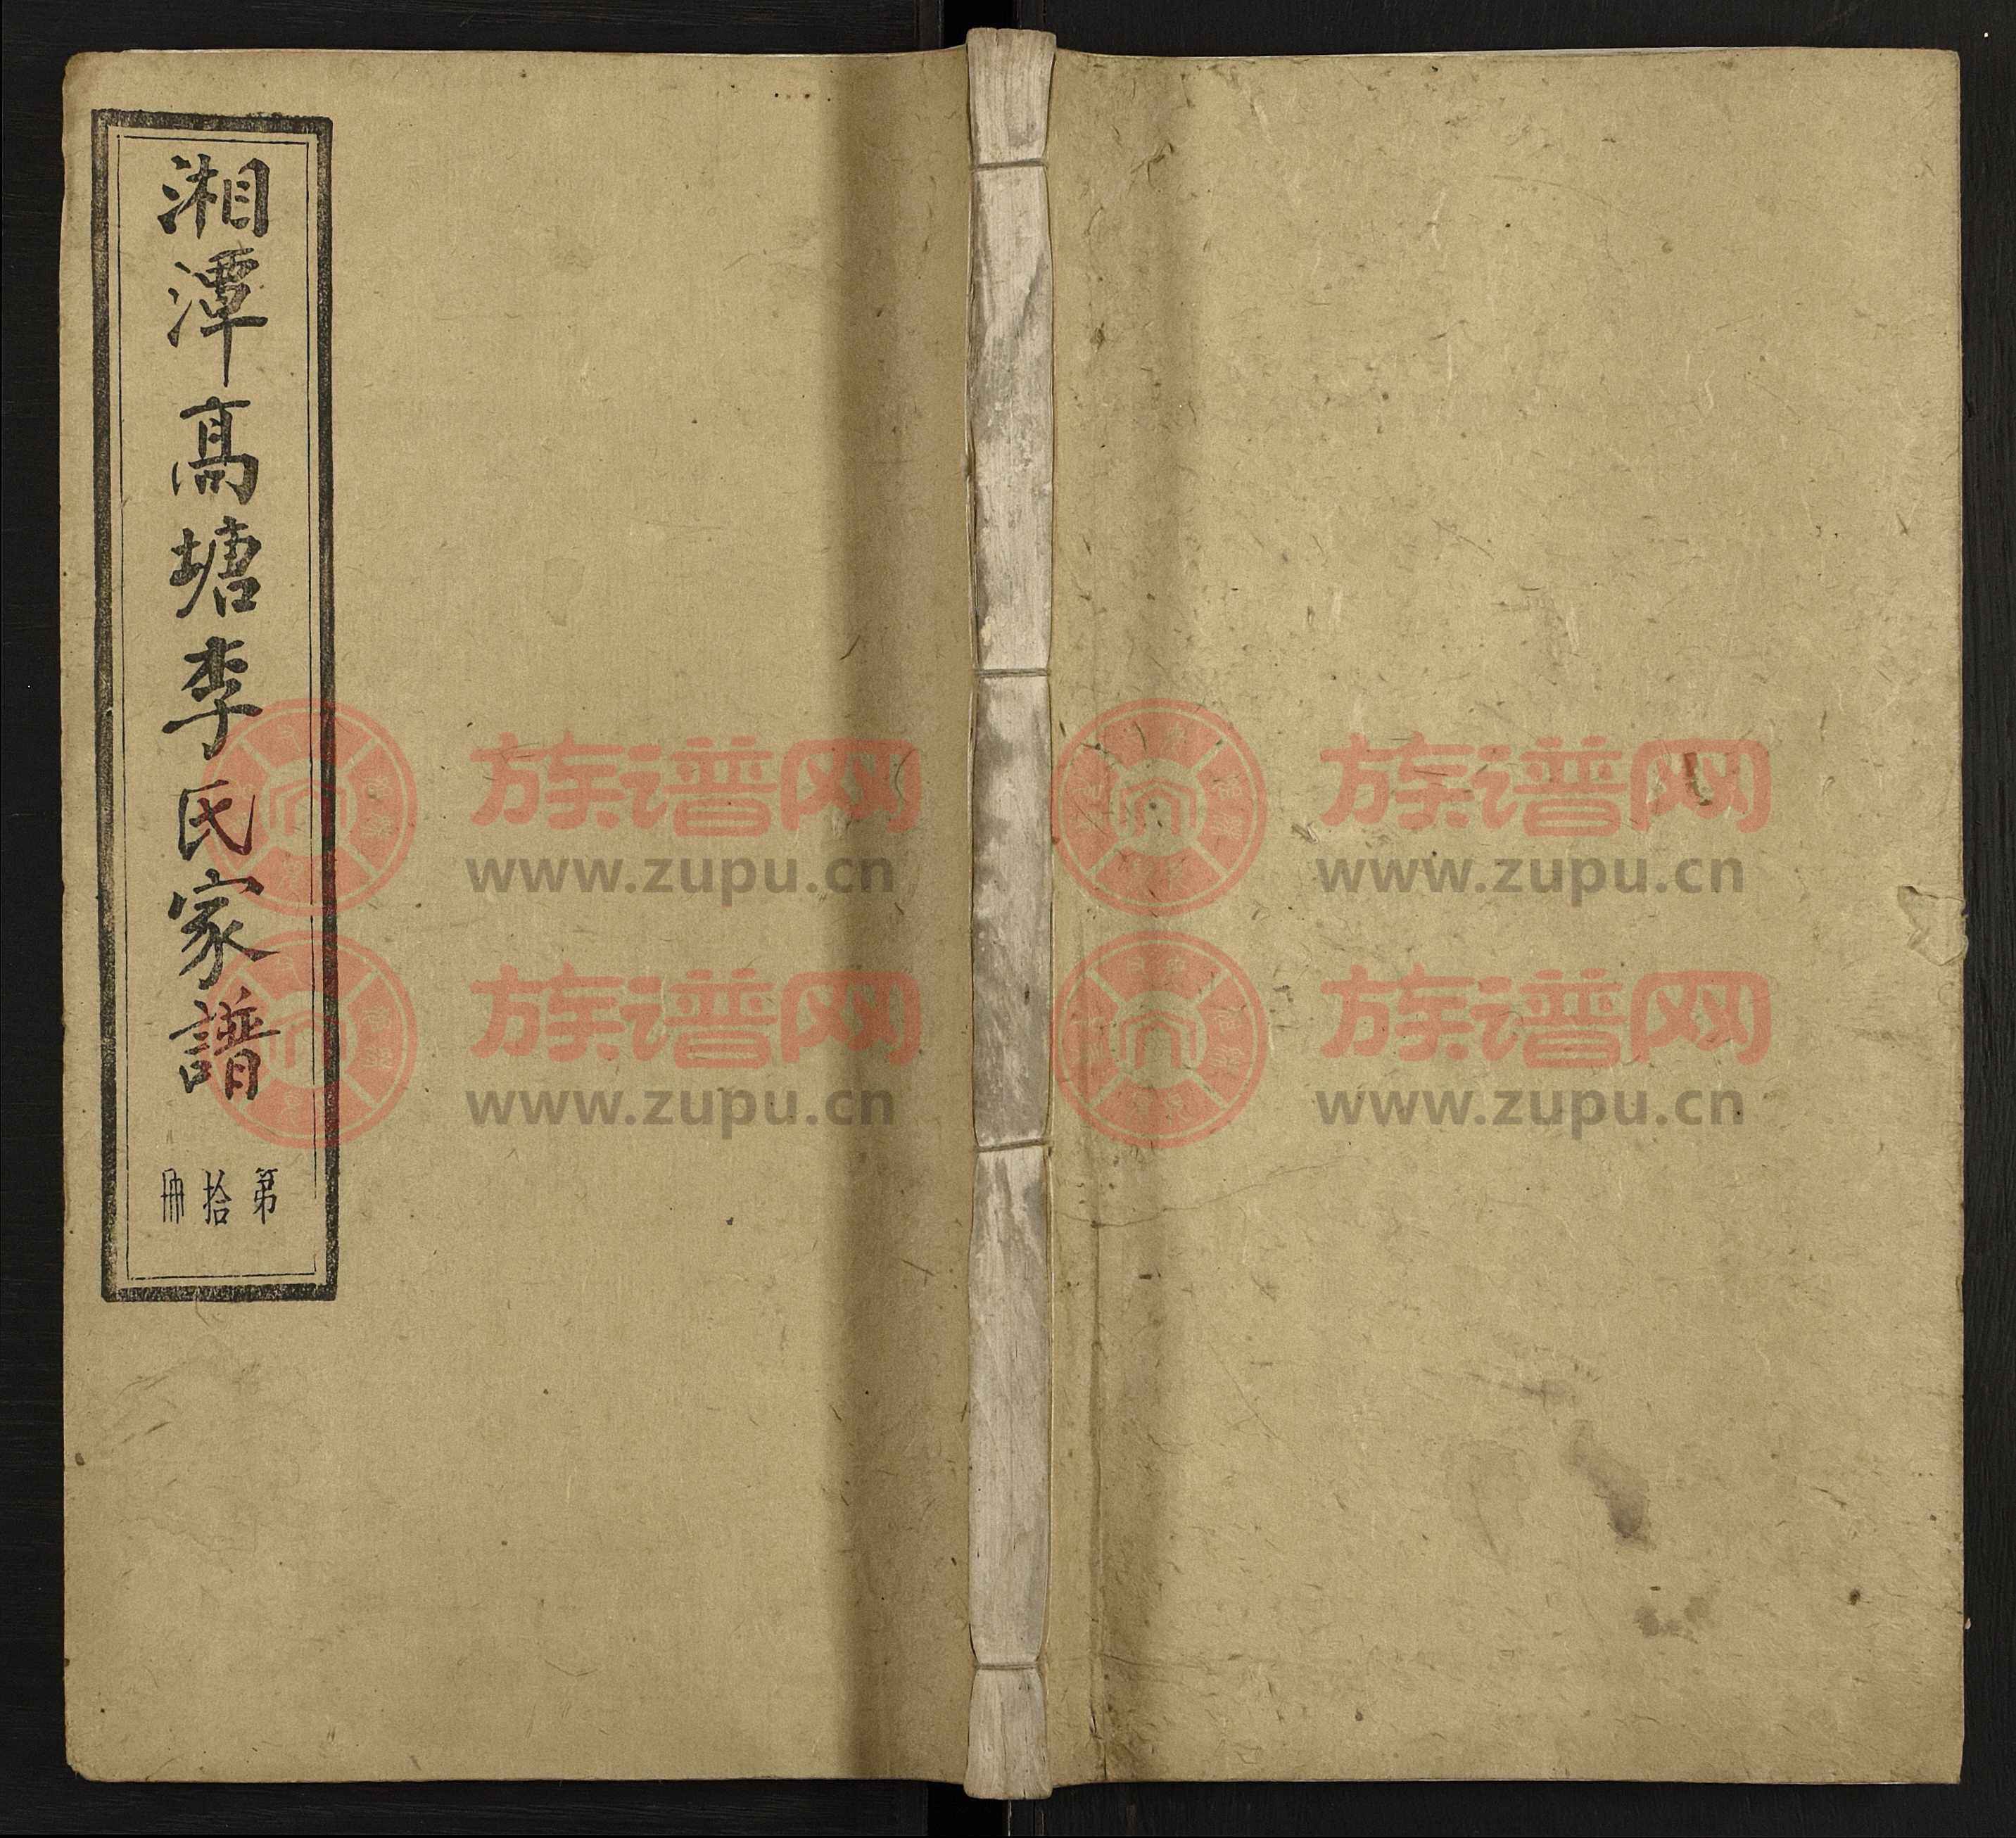 湘潭高塘李氏家譜
第拾冊
族谱网
www.zupu.cn
族谱网
www.zupu.cn
族谱网
www.zupu.cn
族谱网
www.zupu.cn